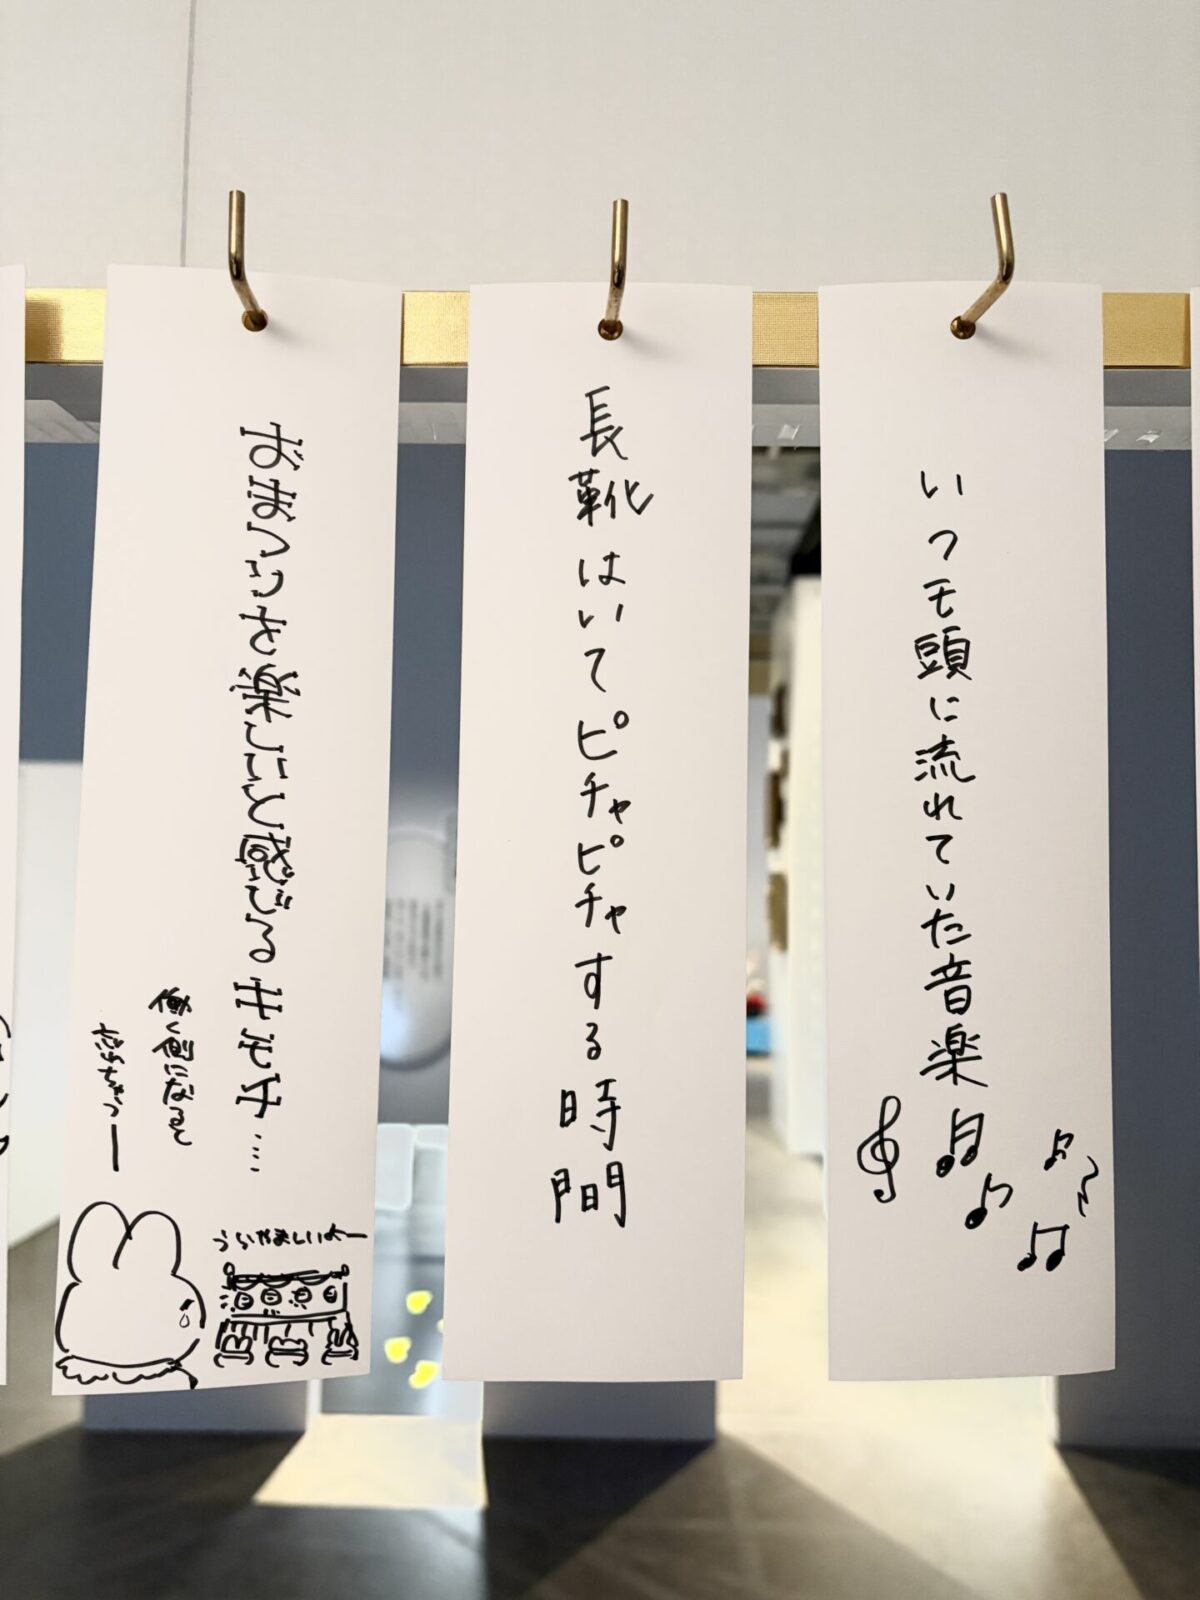 いつモ頭に流れていた音楽
長靴はいてピチャピチャする時間
おまつりを楽しいと感じるキモチ…
働く側になると
忘れちゃうー
うらやましいよー